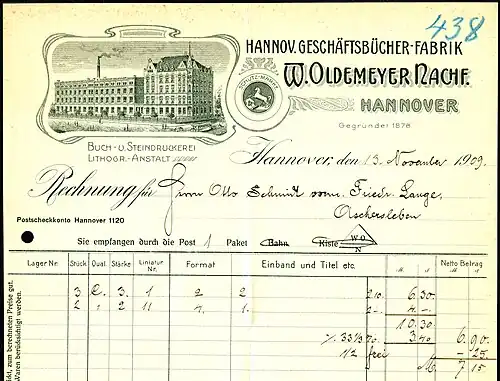 438
HANNOV. GESCHÄFTSBÜCHER-FABRIK
W. OLDEMEYER NACHF.
HANNOVER
SCHUTZ-MARKE
Gegründet 1876
BUCH- U. STEINDRUCKEREI
LITHOGR.-ANSTALT
Hannover, den 13. November 1909.
Rechnung für Herrn Otto Schmidt vorm. Friedr. Lange,
Aschersleben
Postscheckkonto Hannover 1120
Sie empfangen durch die Post 1 Paket Bahn Kiste W O N
Lager Nr. Stück Qual. Stärke Liniatur Nr. Format Einband und Titel etc. M A Netto Betrag M A
3 C. 3. 1 2 2 2.10 6.30
2 " 2 11 4. 1. 2.- 4.-
10.30
% 33 1/3 % 3.40 6.90
1/2 frei - 25
M 7.15
ekt, zum berechneten Preise gut.
Waren berücksichtigt werden.